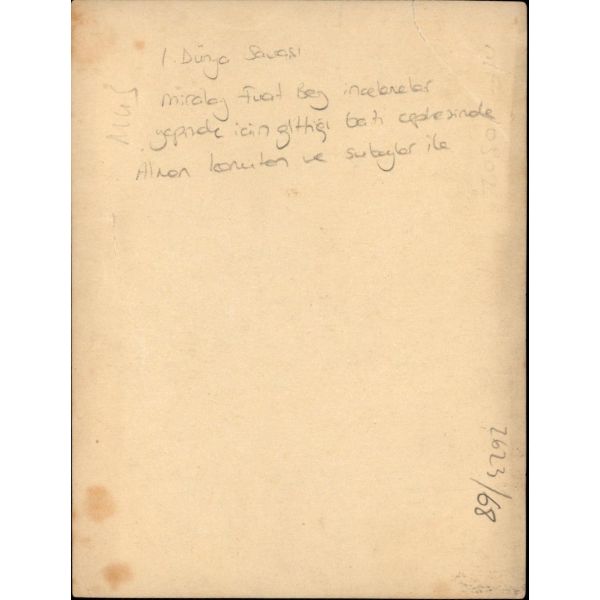 1. Dünya Savaşı
Miralay Fuat Bey incelemeler
yapmak için gittiği batı cephesinde
Alman komutan ve subaylar ile
2623/68